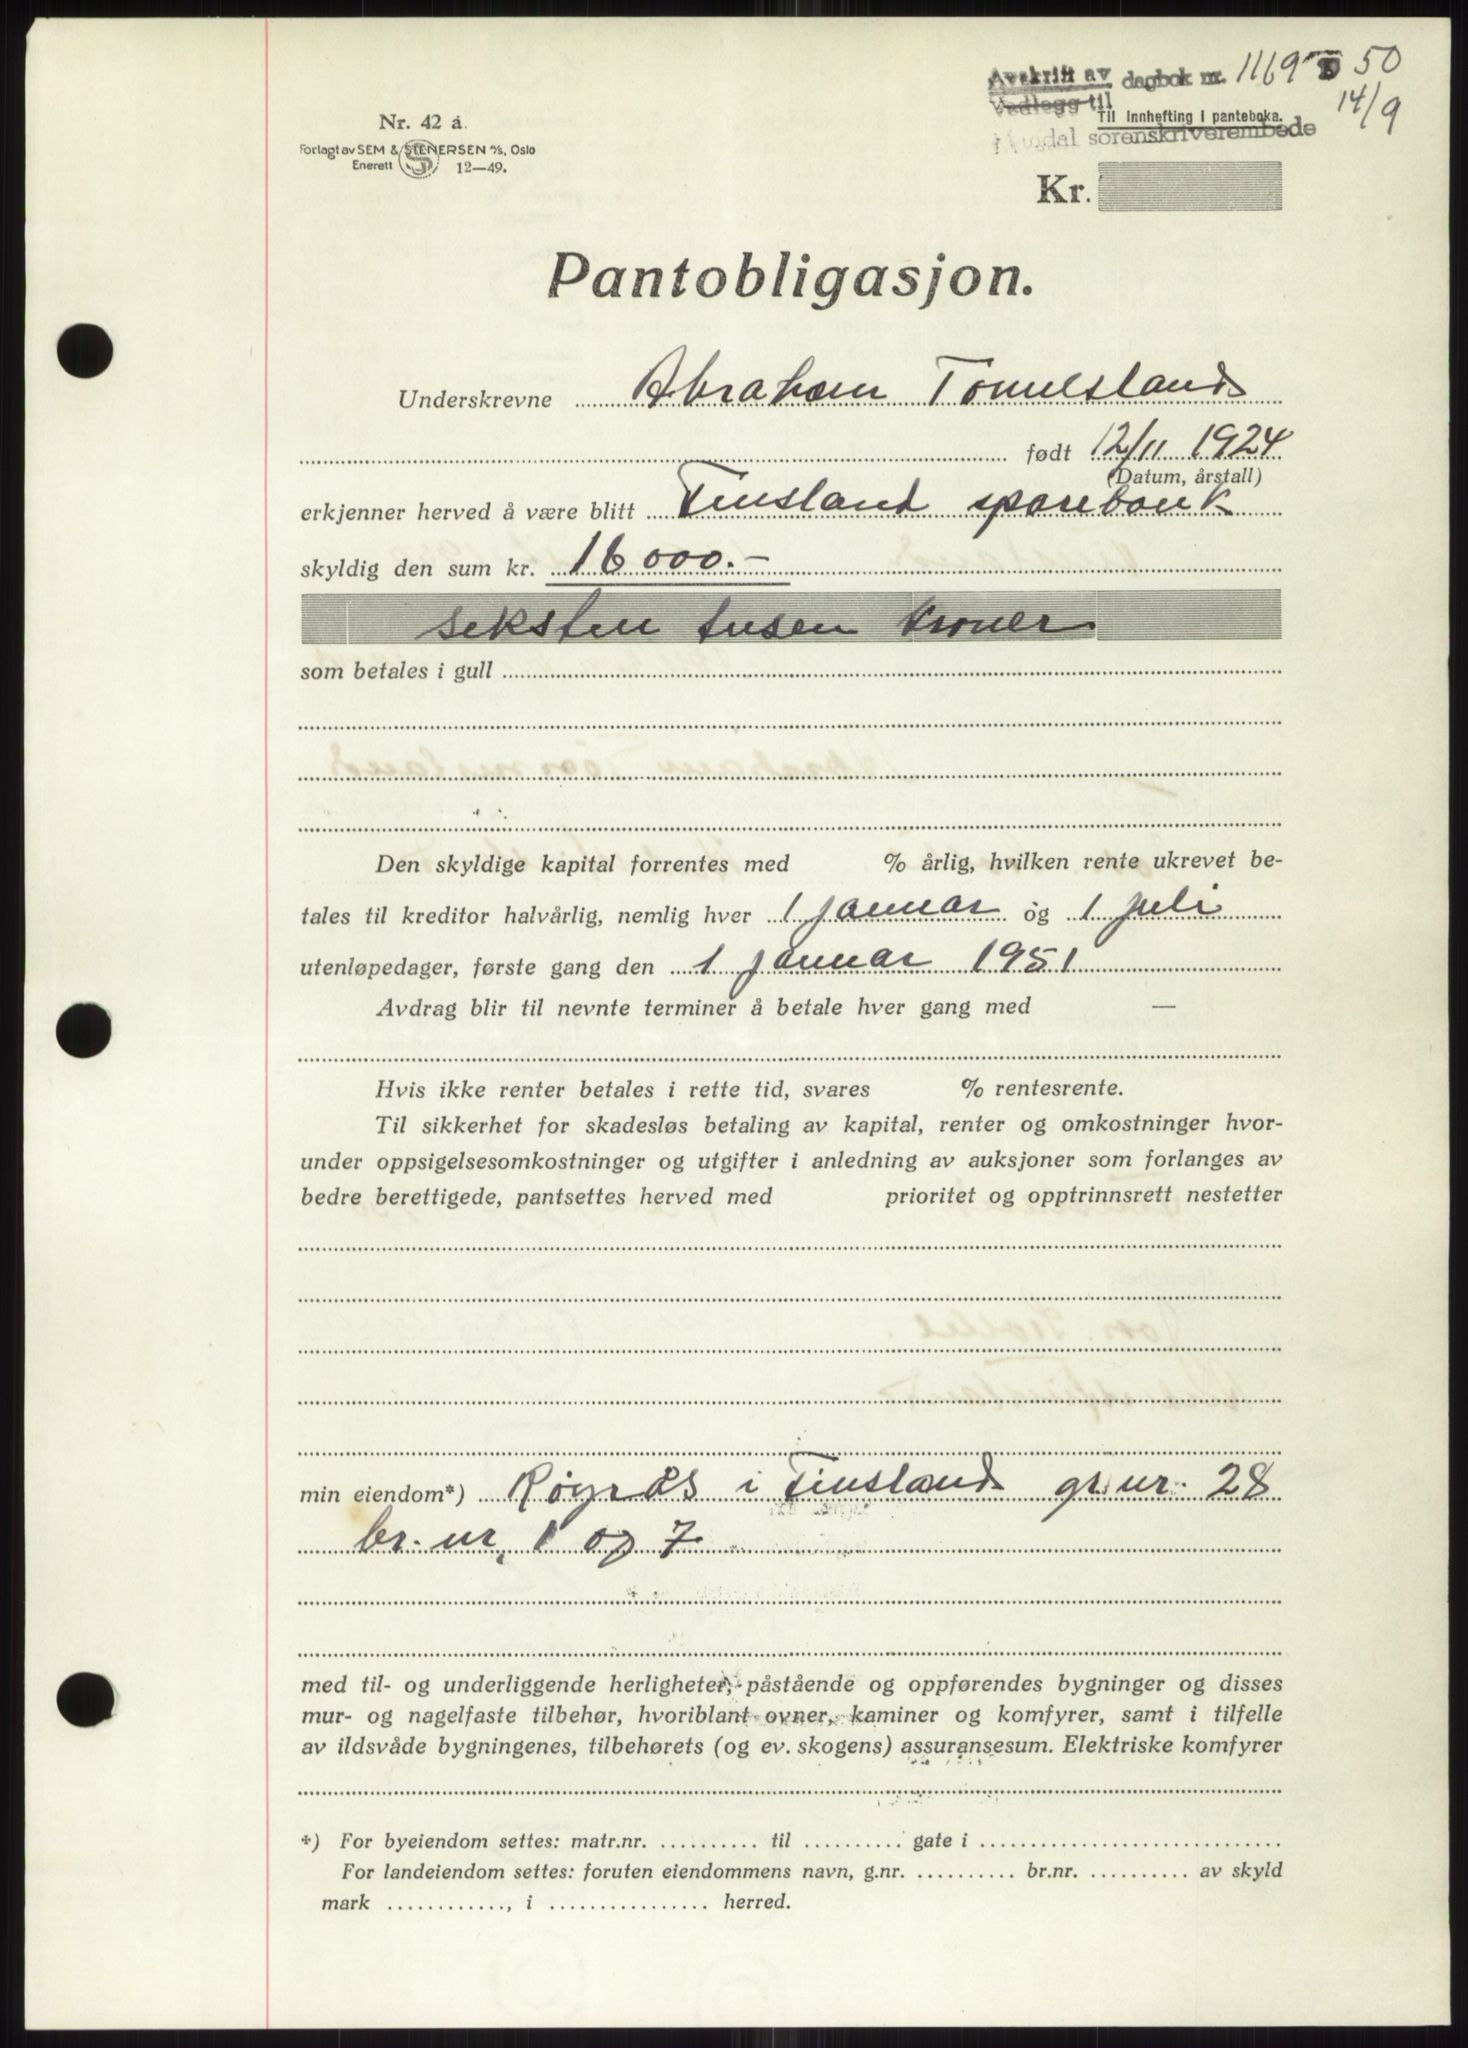 Avskrift av dagbok nr. 1169 50
Vedlegg til 14/9
Til Innhefting i panteboka.
sorenskriverembede
Nr. 42 a.
Forlagt av SEM & STENERSEN A/S, Oslo
Enerett 12—49.
Kr.
Pantobligasjon.
Underskrevne Abraham Tømesland
født 12/11 1924
(Datum, årstall)
erkjenner herved å være blitt Finsland sparebank
skyldig den sum kr. 16 000.-
seksten tusen kroner
som betales i gull
Den skyldige kapital forrentes med % årlig, hvilken rente ukrevet be-
tales til kreditor halvårlig, nemlig hver 1 januar og 1 juli
utenløpedager, første gang den 1 januar 1951
Avdrag blir til nevnte terminer å betale hver gang med —
Hvis ikke renter betales i rette tid, svares % rentesrente.
Til sikkerhet for skadesløs betaling av kapital, renter og omkostninger hvor-
under oppsigelsesomkostninger og utgifter i anledning av auksjoner som forlanges av
bedre berettigede, pantsettes herved med prioritet og opptrinnsrett nestetter
min eiendom*) Røyrås i Finsland gr.nr. 28
br. nr. 1 og 7
med til- og underliggende herligheter, påstående og oppførendes bygninger og disses
mur- og nagelfaste tilbehør, hvoriblant ovner, kaminer og komfyrer, samt i tilfelle
av ildsvåde bygningenes, tilbehørets (og ev. skogens) assuransesum. Elektriske komfyrer
*) For byeiendom settes: matr.nr. .......... til .......... gate i ..............................
For landeiendom settes: foruten eiendommens navn, g.nr. .......... br.nr. .......... av skyld
mark ............, i ................ herred.